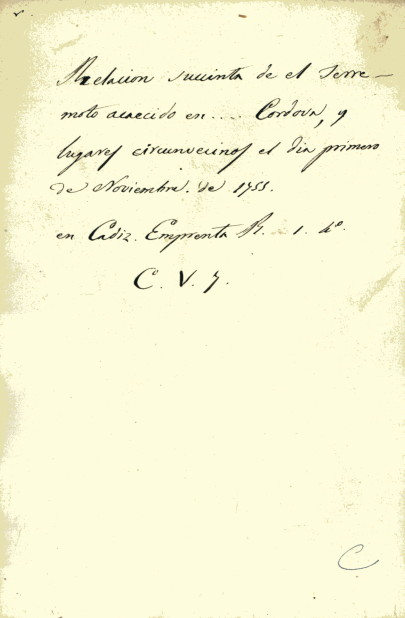 Relacion sucinta de el Terre-
moto acaecido en.... Cordova, y
lugares circunvecinos el dia primero
de Noviembre. de 1755.
en Cadiz. Emprenta R. 1. 4º.
C. V. 7.
C